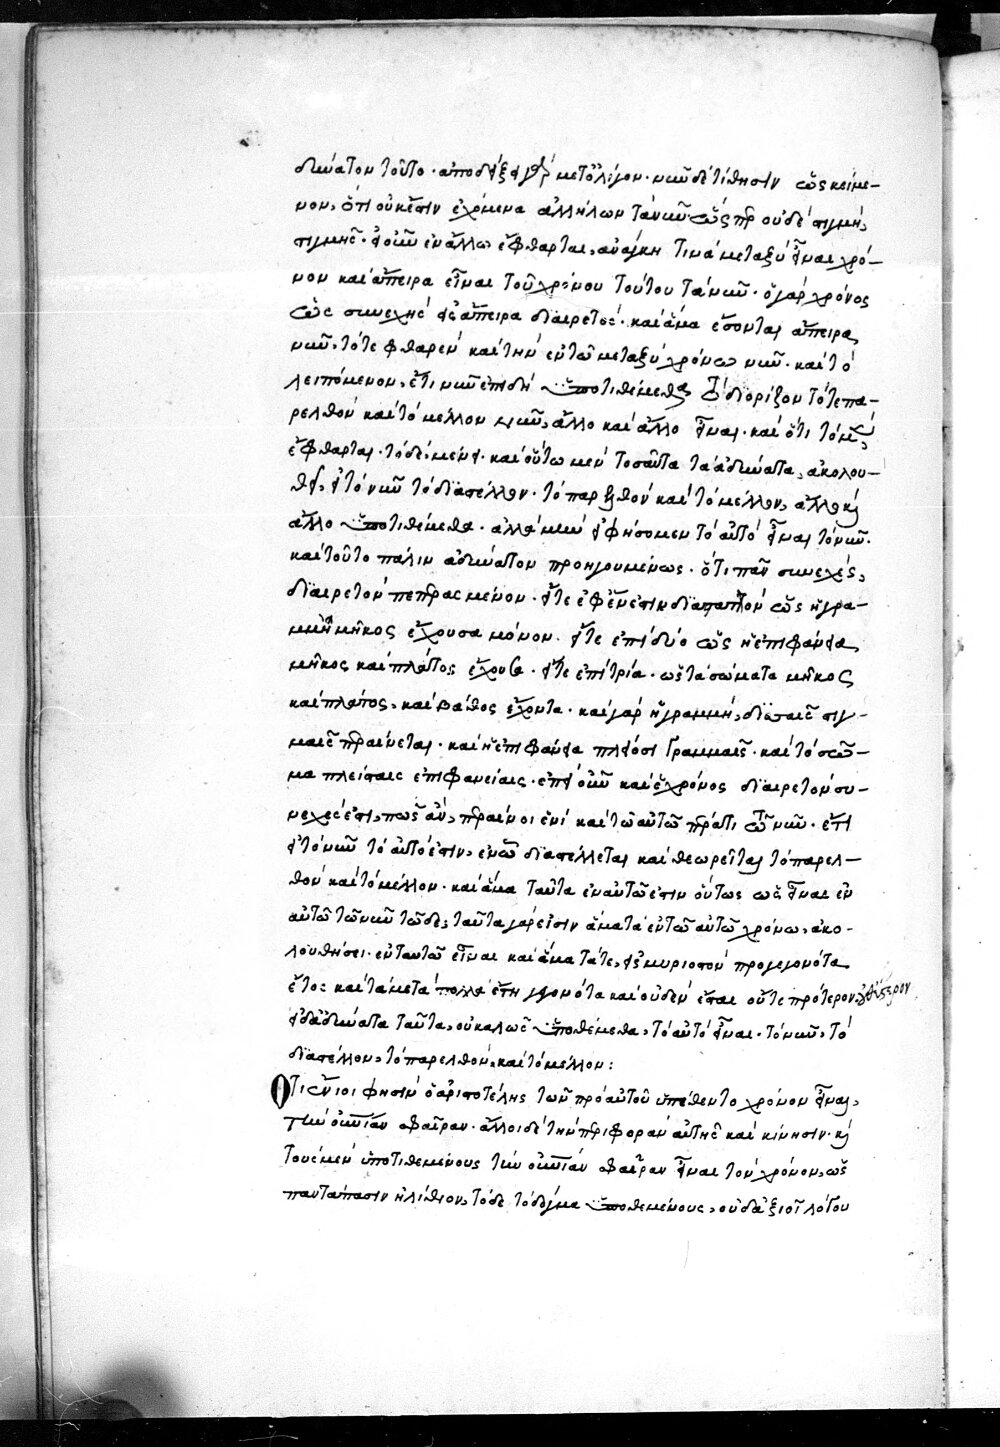 δυνατον τοῦτο· ἀποδείξει γὰρ μετ' ὀλίγον· νῦν δὲ τίθησιν ὡς κείμε-
νον, ὅτι οὐκ ἔστιν ἐχόμενα ἀλλήλων τὰ νῦν· ὥσπερ οὐδὲ στιγμὴ,
στιγμῆς· εἰ οὖν ἐν ἄλλω ἔφθαρται, ἀνάγκη τινὰ μεταξὺ εἶναι χρό-
νον καὶ ἄπειρα εἶναι τοῦ χρόνου τούτου τὰ νῦν· ὁ γὰρ χρόνος
ὡς συνεχὴς εἰς ἄπειρα διαιρετός· καὶ ἅμα ἔσονται ἄπειρα
νῦν, τό τε φθαρὲν καὶ τὴν ἐν τῶ μεταξὺ χρόνω νῦν· καὶ τὸ
λειπόμενον, ἔτι νῦν ἐπειδὴ ὑποτιθέμεθα τὸ διορίζον τό τε πα-
ρελθὸν καὶ τὸ μέλλον νῦν, ἄλλο καὶ ἄλλο εἶναι· καὶ ὅτι τὸ νῦν,
ἔφθαρται· τὸ δὲ μένει· καὶ οὕτω μὲν τοσαῦτα τὰ ἀδύνατα, ἀκολου-
θεῖ, εἰ τὸ νῦν τὸ διαστέλλον· τὸ παρελθὸν καὶ τὸ μέλλον, ἄλλο καὶ
ἄλλο ὑποτιθέμεθα· ἀλλὰ μὴν εἰ φήσομεν τὸ αὐτὸ εἶναι τὸ νῦν·
καὶ τοῦτο πάλιν ἀδύνατον προηγουμένως· ὅτι πᾶν συνεχὲς,
διαιρετὸν πεπερασμένον· εἴτε ἐφ' ἕν ἐστιν διαστατὸν ὡς ἡ γρα-
μμὴ μῆκος ἔχουσα μόνον· εἴτε ἐπὶ δύο ὡς ἡ ἐπιφάνεια
μῆκος καὶ πλάτος ἔχουσα· εἴτε ἐπὶ τρία· ὡς τὰ σώματα μῆκος
καὶ πλάτος, καὶ βάθος ἔχοντα· καὶ γὰρ ἡ γραμμὴ, δυσὶ στιγ-
μαῖς περαίνεται· καὶ ἡ ἐπιφάνεια πλείοσι γραμμαῖς· καὶ τὸ σῶ-
μα πλείσταις ἐπιφανείαις· ἐπεὶ οὖν καὶ ὁ χρόνος διαιρετὸν συ-
νεχές ἐστι, πῶς ἂν, περαίνοι ἑνὶ καὶ τῶ αὐτῶ πέρατι τῶ νῦν· ἔτι
εἰ τὸ νῦν τὸ αὐτό ἐστιν, ἐν ὧ διαστέλλεται καὶ θεωρεῖται τὸ παρελ-
θὸν καὶ τὸ μέλλον· καὶ ἅμα ταῦτα ἐν αὐτῶ ἐστιν οὕτως ὡς εἶναι ἐν
αὐτῶ τῶ νῦν τῶδε, ταῦτα γάρ εἰσιν ἅμα τὰ ἐν τῶ αὐτῶ χρόνω, ἀκο-
λουθήσει· ἐν ταυτῶ εἶναι καὶ ἅμα τά τε, εἰς μυριοστὸν προγεγονότα
ἔτος καὶ τὰ μετὰ πολλὰ ἔτη γεγονότα καὶ οὐδὲν ἔσται οὔτε πρότερον, οὔθ' ὕστερον
εἰ δὲ ἀδύνατα ταῦτα, οὐ καλῶς ὑποθέμεθα, τὸ αὐτὸ εἶναι· τὸ νῦν, τὸ
διαστέλλον, τὸ παρελθὸν, καὶ τὸ μέλλον:
Ὅτι ἔνιοι φησὶν ὁ ἀριστοτέλης τῶν πρὸ αὐτοῦ ὑπέθεντο χρόνον εἶναι,
τὴν οὐρανίαν σφαῖραν· ἄλλοι δὲ τὴν περιφορὰν αὐτῆς καὶ κίνησιν· καὶ
τοὺς μὲν ὑποτιθεμένους τὴν οὐρανίαν σφαῖραν εἶναι τὸν χρόνον, ὡς
πανταπάσιν ἠλίθιον, τόδε τὸ δόγμα ὑποθεμένους, οὐδ' ἀξιοῖ λόγου